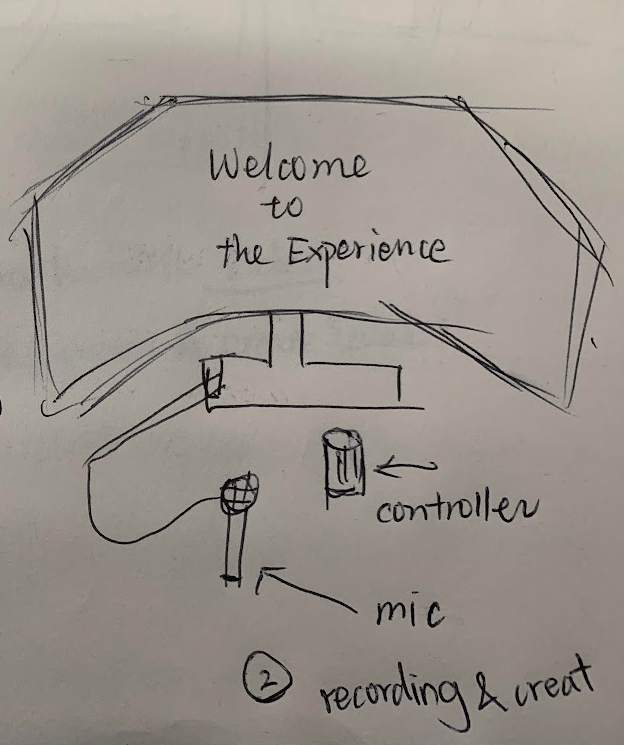 Welcome
to
the Experience
controller
mic
2 recording & creat